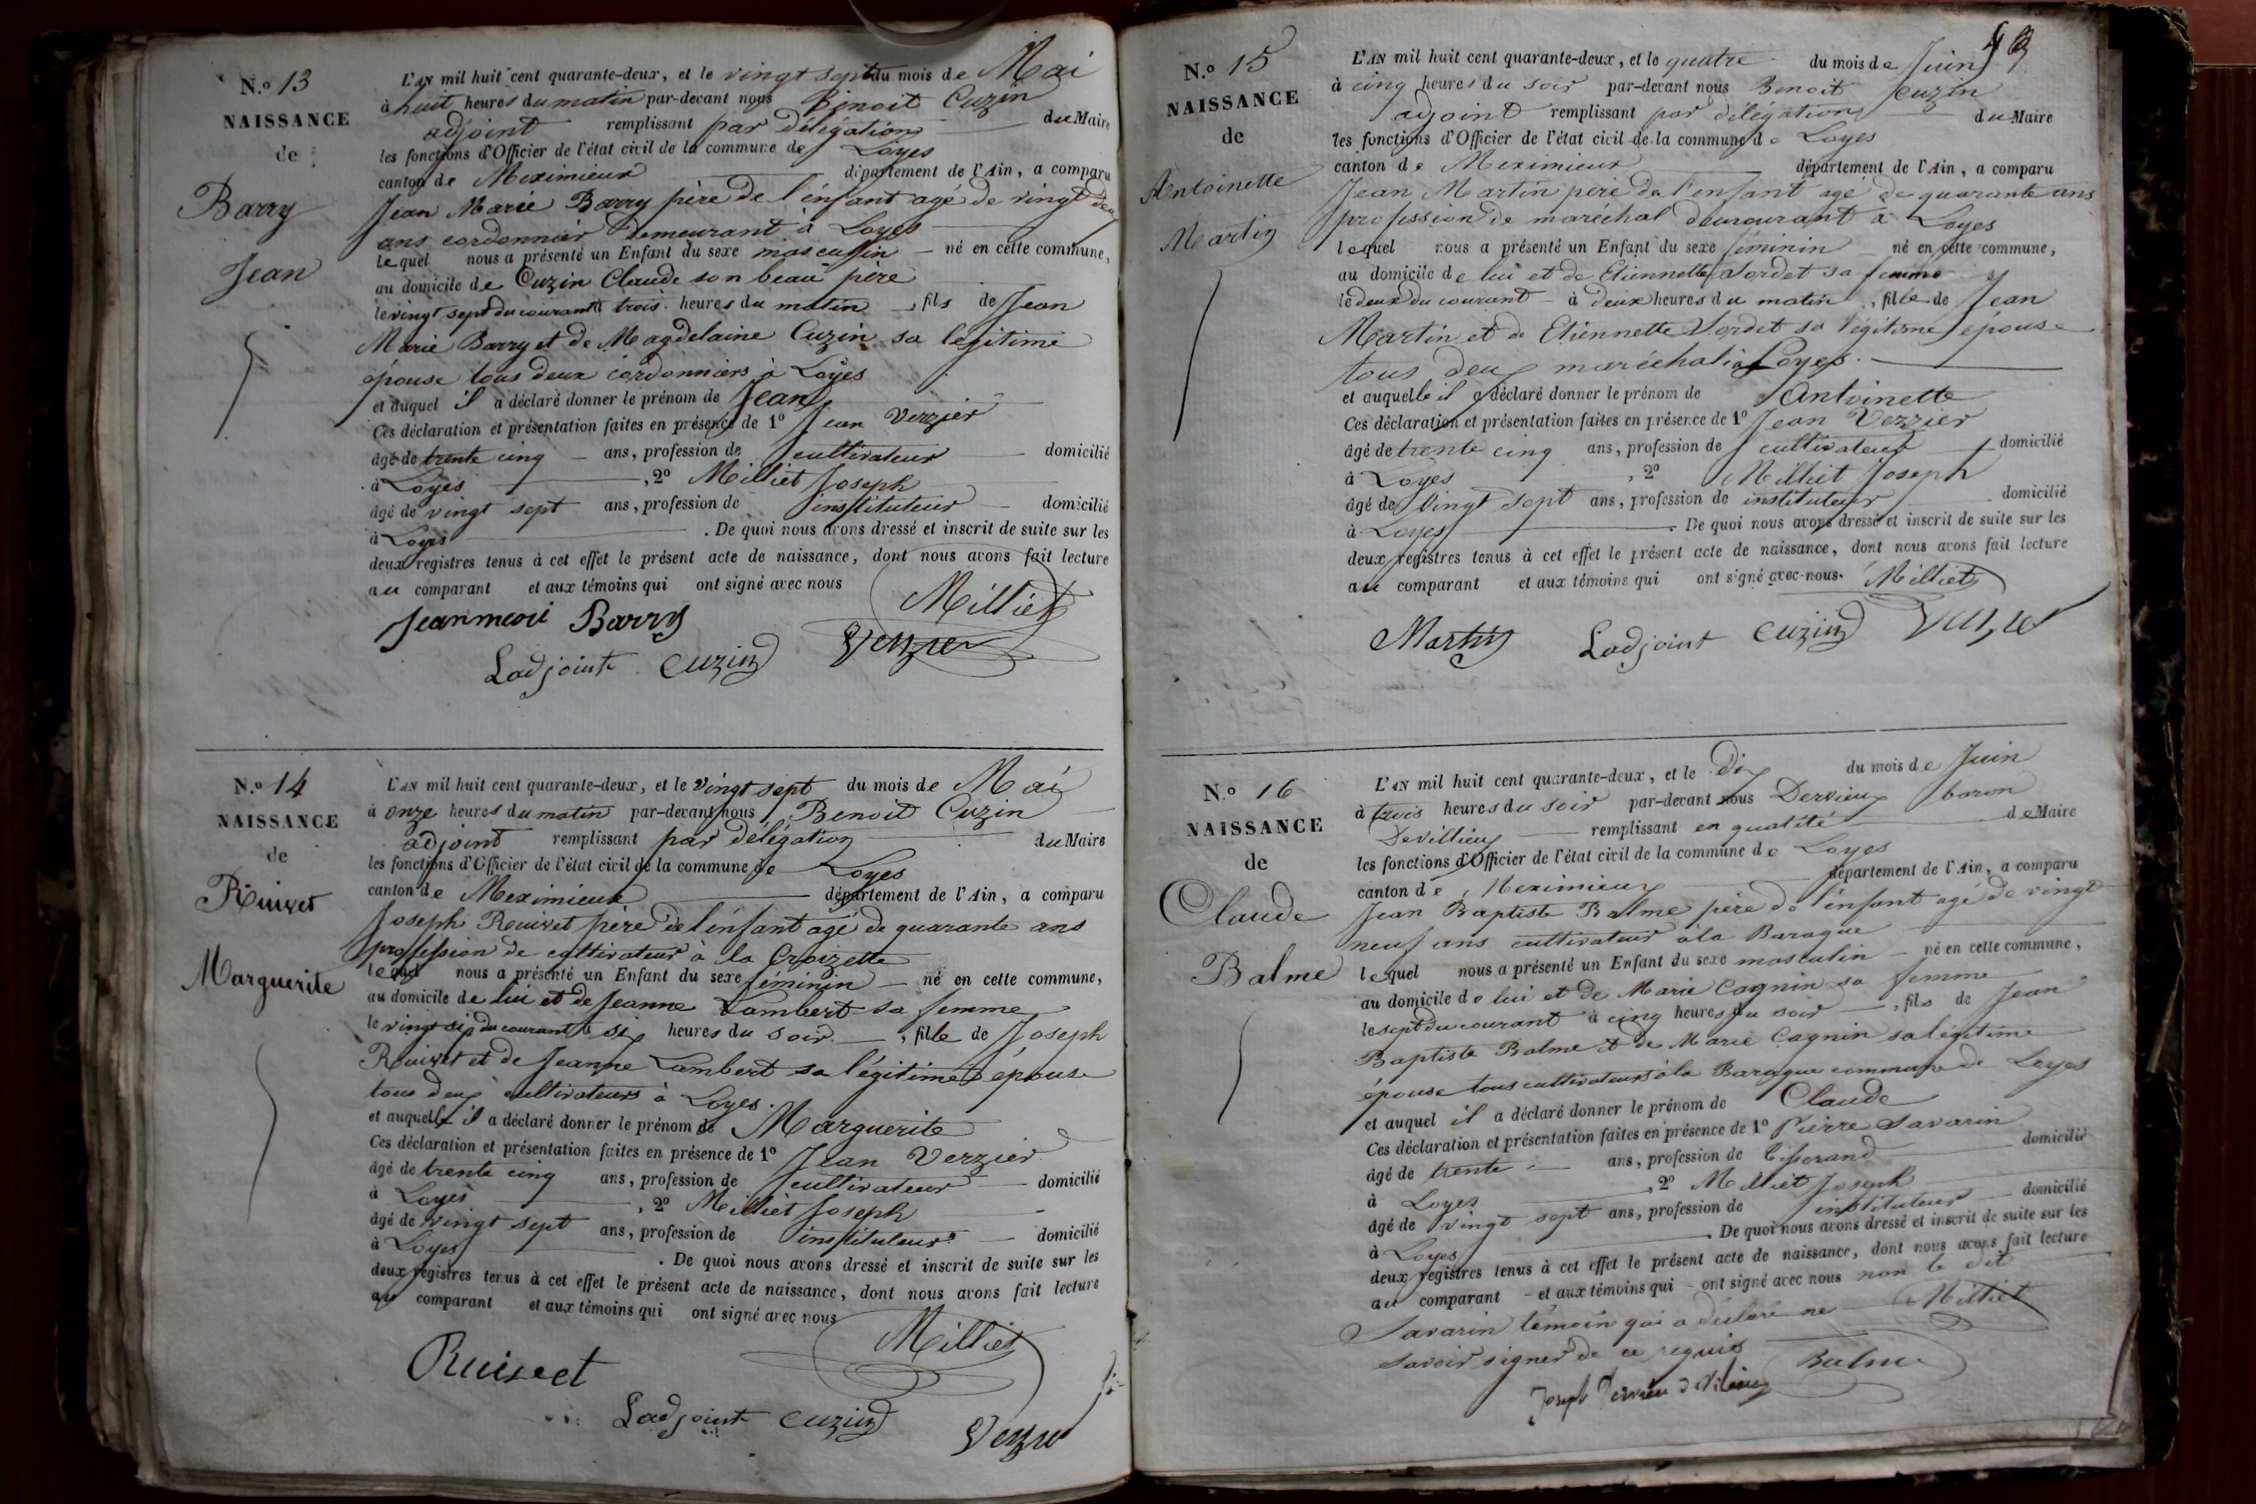 N.º 13
NAISSANCE
de
Barry
Jean
L'AN mil huit cent quarante-deux, et le vingt sept du mois de Mai
à huit heures du matin par-devant nous Benoit Cuzin
adjoint remplissant par délégation du Maire
les fonctions d'Officier de l'état civil de la commune de Loyes
canton de Meximieux département de l'Ain, a comparu
Jean Marie Barry père de l'énfant agé de vingt
ans cordonnier demeurant à Loyes
lequel nous a présenté un Enfant du sexe masculin né en cette commune,
au domicile de Cuzin Claude son beau père
le vingt sept du courant à trois heures du matin, fils de Jean
Marie Barry et de Magdelaine Cuzin sa legitime
épouse tous deux cordonniers à Loyes
et auquel il a déclaré donner le prénom de Jean
Ces déclaration et présentation faites en présence de 1º Jean Verzier
âgé de trente cinq ans, profession de cultivateur domicilié
à Loyes, 2º Milliet Joseph
âgé de vingt sept ans, profession de instituteur domicilié
à Loyes. De quoi nous avons dressé et inscrit de suite sur les
deux registres tenus à cet effet le présent acte de naissance, dont nous avons fait lecture
au comparant et aux témoins qui ont signé avec nous
Milliet
Jeanmarie Barry
Verzier
Ladjoint Cuzin
N.º 14
NAISSANCE
de
Ruivet
Marguerite
L'AN mil huit cent quarante-deux, et le vingt sept du mois de Mai
à onze heures du matin par-devant nous Benoit Cuzin
adjoint remplissant par délégation du Maire
les fonctions d'Officier de l'état civil de la commune de Loyes
canton de Meximieux département de l'Ain, a comparu
Joseph Ruivet père de l'énfant agé de quarante ans
profession de cultivateur à la Croizette
lequel nous a présenté un Enfant du sexe féminin né en cette commune,
au domicile de lui et de Jeanne Lambert sa femme
le vingt six du courant à six heures du soir, fille de Joseph
Ruivet et de Jeanne Lambert sa légitime épouse
tous deux cultivateurs à Loyes.
et auquelle il a déclaré donner le prénom de Marguerite
Ces déclaration et présentation faites en présence de 1º Jean Verzier
âgé de trente cinq ans, profession de cultivateur domicilié
à Loyes, 2º Milliet Joseph
âgé de vingt sept ans, profession de instituteur domicilié
à Loyes. De quoi nous avons dressé et inscrit de suite sur les
deux registres tenus à cet effet le présent acte de naissance, dont nous avons fait lecture
au comparant et aux témoins qui ont signé avec nous
Milliet
Ruivet
Ladjoint Cuzin
Verzier
N.º 15
NAISSANCE
de
Antoinette
Martin
L'AN mil huit cent quarante-deux, et le quatre du mois de Juin
à cinq heures du soir par-devant nous Benoit Cuzin
adjoint remplissant par délégation du Maire
les fonctions d'Officier de l'état civil de la commune de Loyes
canton de Meximieux département de l'Ain, a comparu
Jean Martin père de l'enfant agé de quarante ans
profession de maréchal demeurant à Loyes
lequel nous a présenté un Enfant du sexe féminin né en cette commune,
au domicile de lui et de Etiennette Sordet sa femme
le deux du courant à deux heures du matin, fille de Jean
Martin et de Etiennette Sordet sa légitime épouse
tous deux maréchal à Loyes.
et auquelle il a déclaré donner le prénom de Antoinette
Ces déclaration et présentation faites en présence de 1º Jean Verzier
âgé de trente cinq ans, profession de cultivateur domicilié
à Loyes, 2º Milliet Joseph
âgé de vingt sept ans, profession de instituteur domicilié
à Loyes. De quoi nous avons dressé et inscrit de suite sur les
deux registres tenus à cet effet le présent acte de naissance, dont nous avons fait lecture
au comparant et aux témoins qui ont signé avec nous. Milliet
Martin Ladjoint Cuzin Verzier
N.º 16
NAISSANCE
de
Claude
Balme
L'AN mil huit cent quarante-deux, et le dix du mois de Juin
à trois heures du soir par-devant nous Dervieux baron
Devillieu remplissant en qualité de Maire
les fonctions d'Officier de l'état civil de la commune de Loyes
canton de Meximieux département de l'Ain, a comparu
Jean Baptiste Balme père de l'énfant agé de vingt
neuf ans cultivateur à la Baraque
lequel nous a présenté un Enfant du sexe masculin né en cette commune,
au domicile de lui et de Marie Cagnin sa femme
le sept du courant à cinq heures du soir, fils de Jean
Baptiste Balme et de Marie Cagnin sa légitime
épouse tous cultivateurs à la Baraque commune de Loyes
et auquel il a déclaré donner le prénom de Claude
Ces déclaration et présentation faites en présence de 1º Pierre Savarin
âgé de trente ans, profession de tisserand domicilié
à Loyes, 2º Milliet Joseph
âgé de vingt sept ans, profession de instituteur domicilié
à Loyes. De quoi nous avons dressé et inscrit de suite sur les
deux registres tenus à cet effet le présent acte de naissance, dont nous avons fait lecture
au comparant et aux témoins qui ont signé avec nous non le dit
Savarin témoin qui a déclaré ne Milliet
savoir signer de ce requis
Balme
Joseph Dervieu